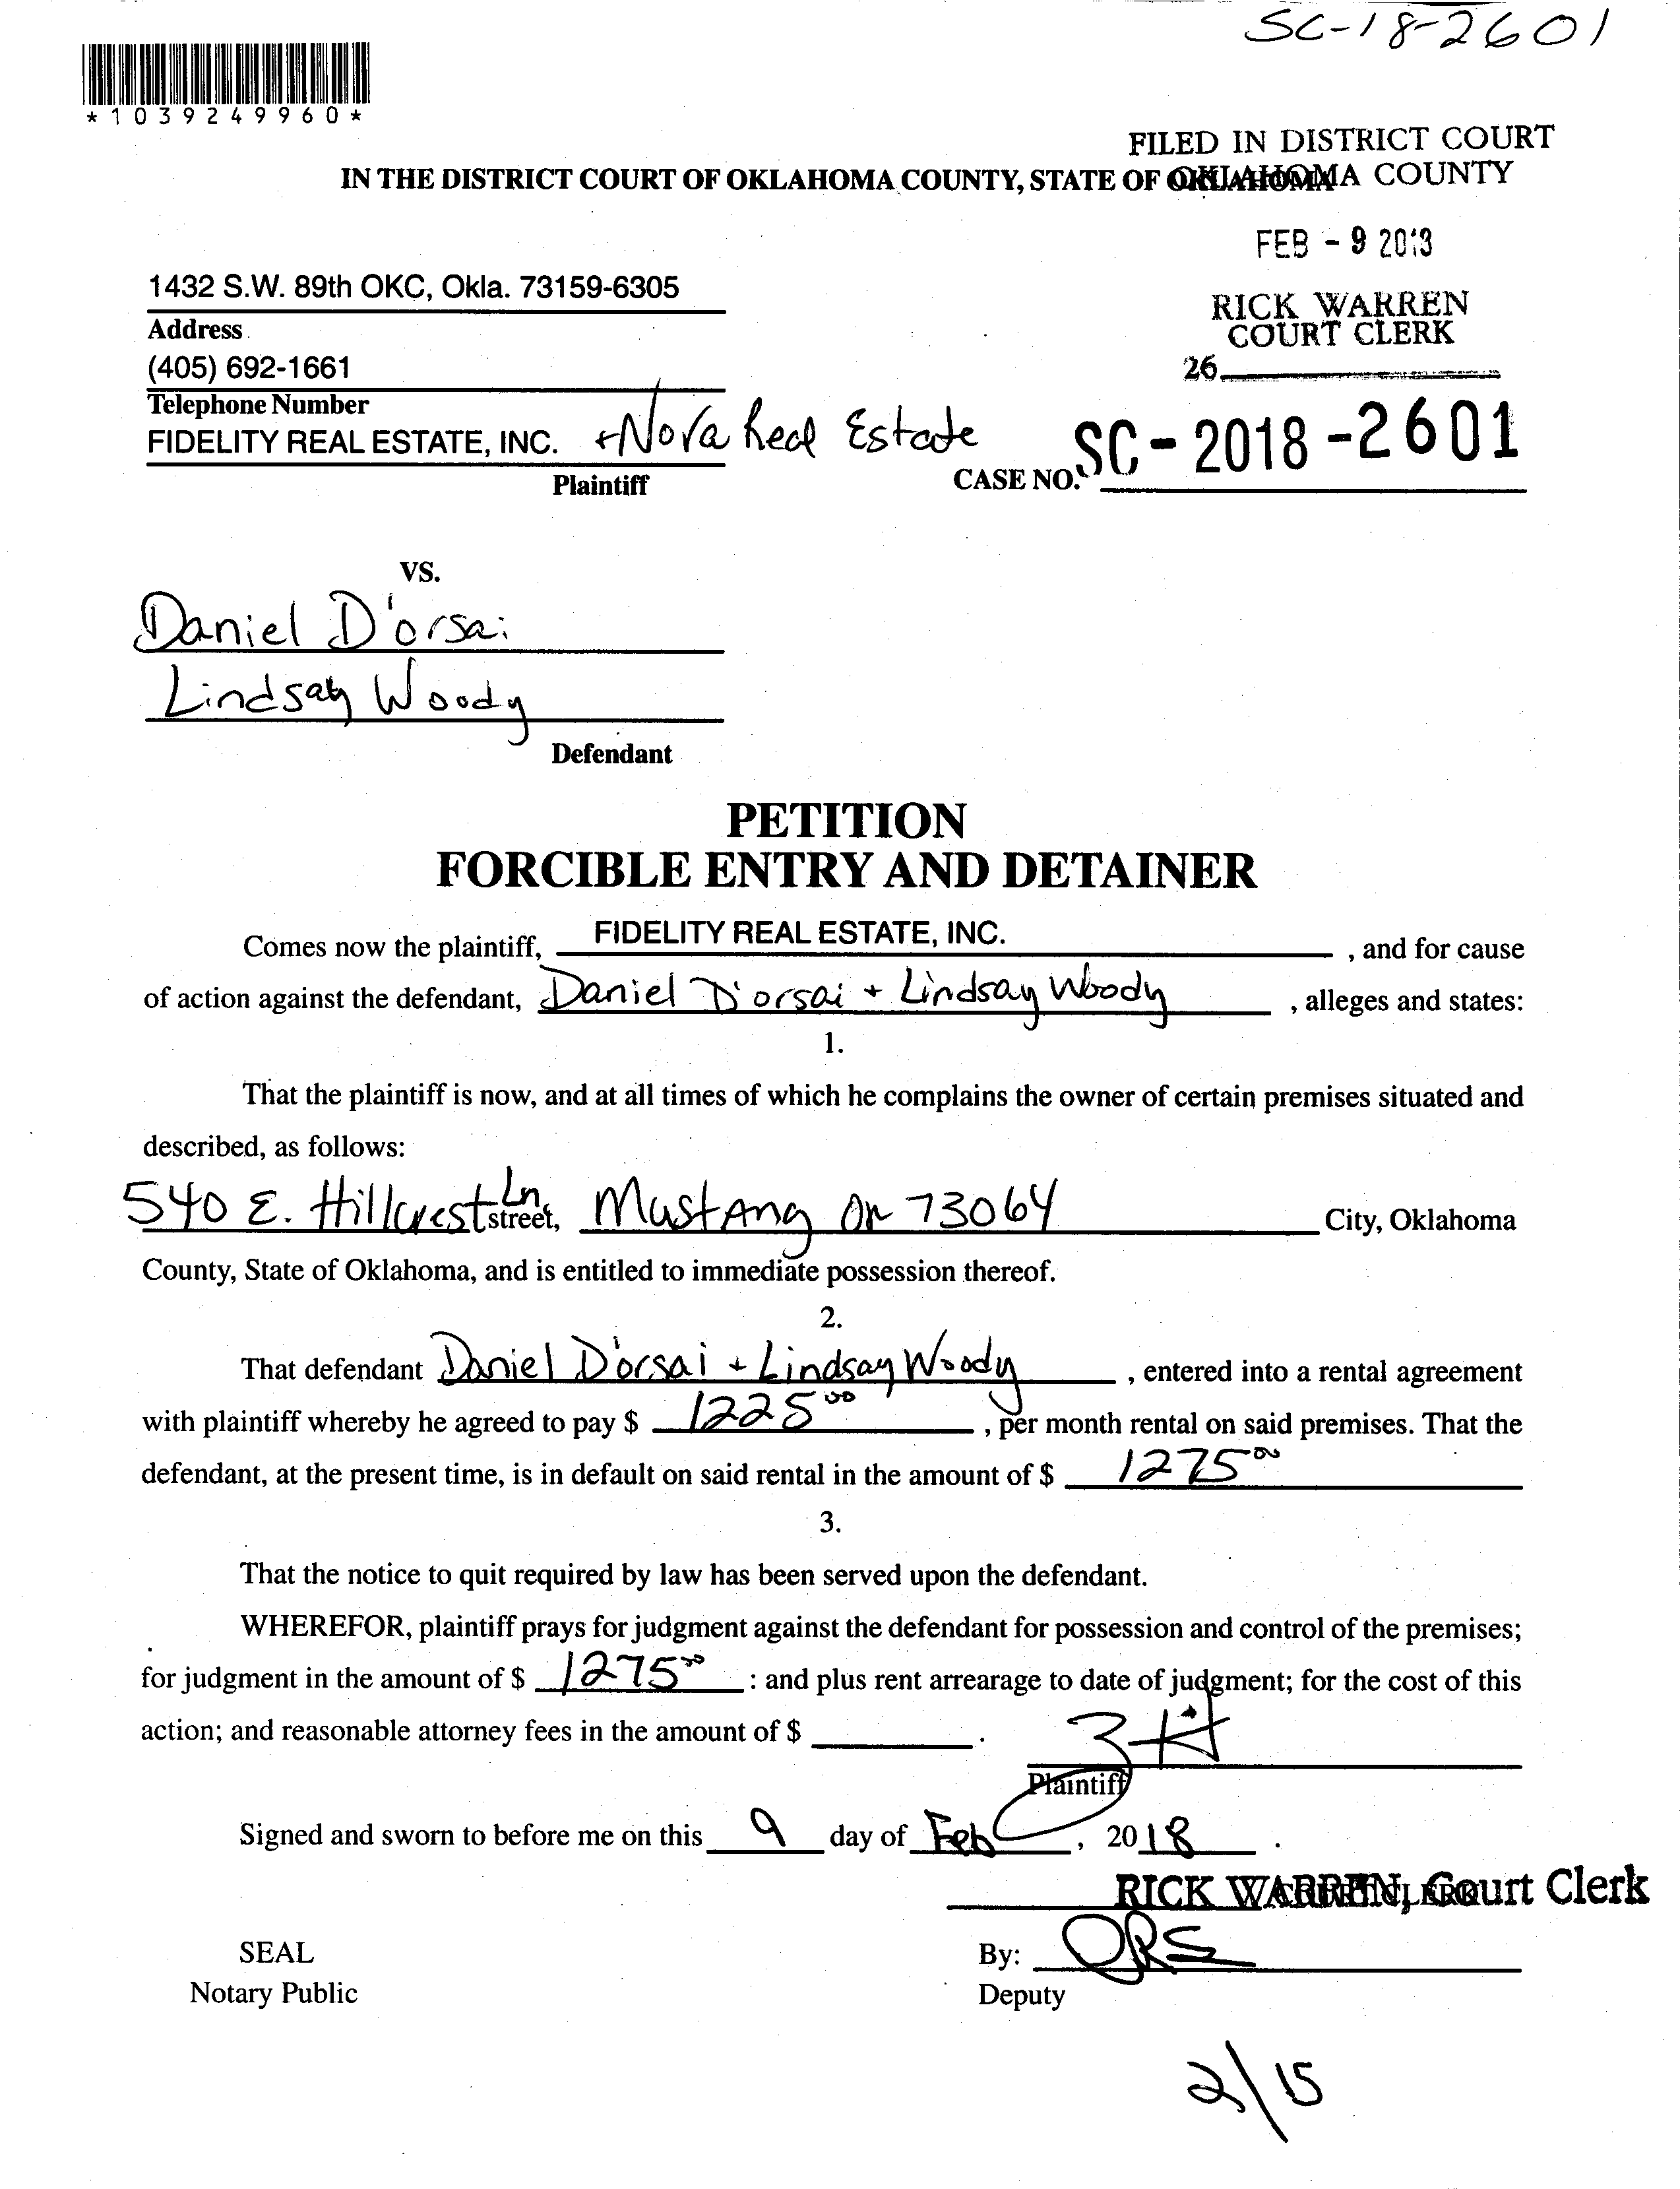 SC-18-2601
*1039249960*
FILED IN DISTRICT COURT
OKLAHOMA COUNTY
IN THE DISTRICT COURT OF OKLAHOMA COUNTY, STATE OF OKLAHOMA
FEB - 9 2018
1432 S.W. 89th OKC, Okla. 73159-6305
Address
RICK WARREN
COURT CLERK
(405) 692-1661
26
Telephone Number
FIDELITY REAL ESTATE, INC. + Nova Real Estate
Plaintiff
CASE NO. SC-2018-2601
VS.
Daniel D'orsai
Lindsay Woody
Defendant
PETITION
FORCIBLE ENTRY AND DETAINER
Comes now the plaintiff, FIDELITY REAL ESTATE, INC. , and for cause
of action against the defendant, Daniel D'orsai + Lindsay Woody , alleges and states:
1.
That the plaintiff is now, and at all times of which he complains the owner of certain premises situated and
described, as follows:
540 E. Hillcrest Ln street, Mustang OK 73064 City, Oklahoma
County, State of Oklahoma, and is entitled to immediate possession thereof.
2.
That defendant Daniel D'orsai + Lindsay Woody , entered into a rental agreement
with plaintiff whereby he agreed to pay $ 1225 00 , per month rental on said premises. That the
defendant, at the present time, is in default on said rental in the amount of $ 1275 00
3.
That the notice to quit required by law has been served upon the defendant.
WHEREFOR, plaintiff prays for judgment against the defendant for possession and control of the premises;
for judgment in the amount of $ 1275 00 : and plus rent arrearage to date of judgment; for the cost of this
action; and reasonable attorney fees in the amount of $ .
Plaintiff
Signed and sworn to before me on this 9 day of Feb , 2018 .
RICK WARREN, Court Clerk
COURT CLERK
SEAL
By:
Notary Public
Deputy
2/15